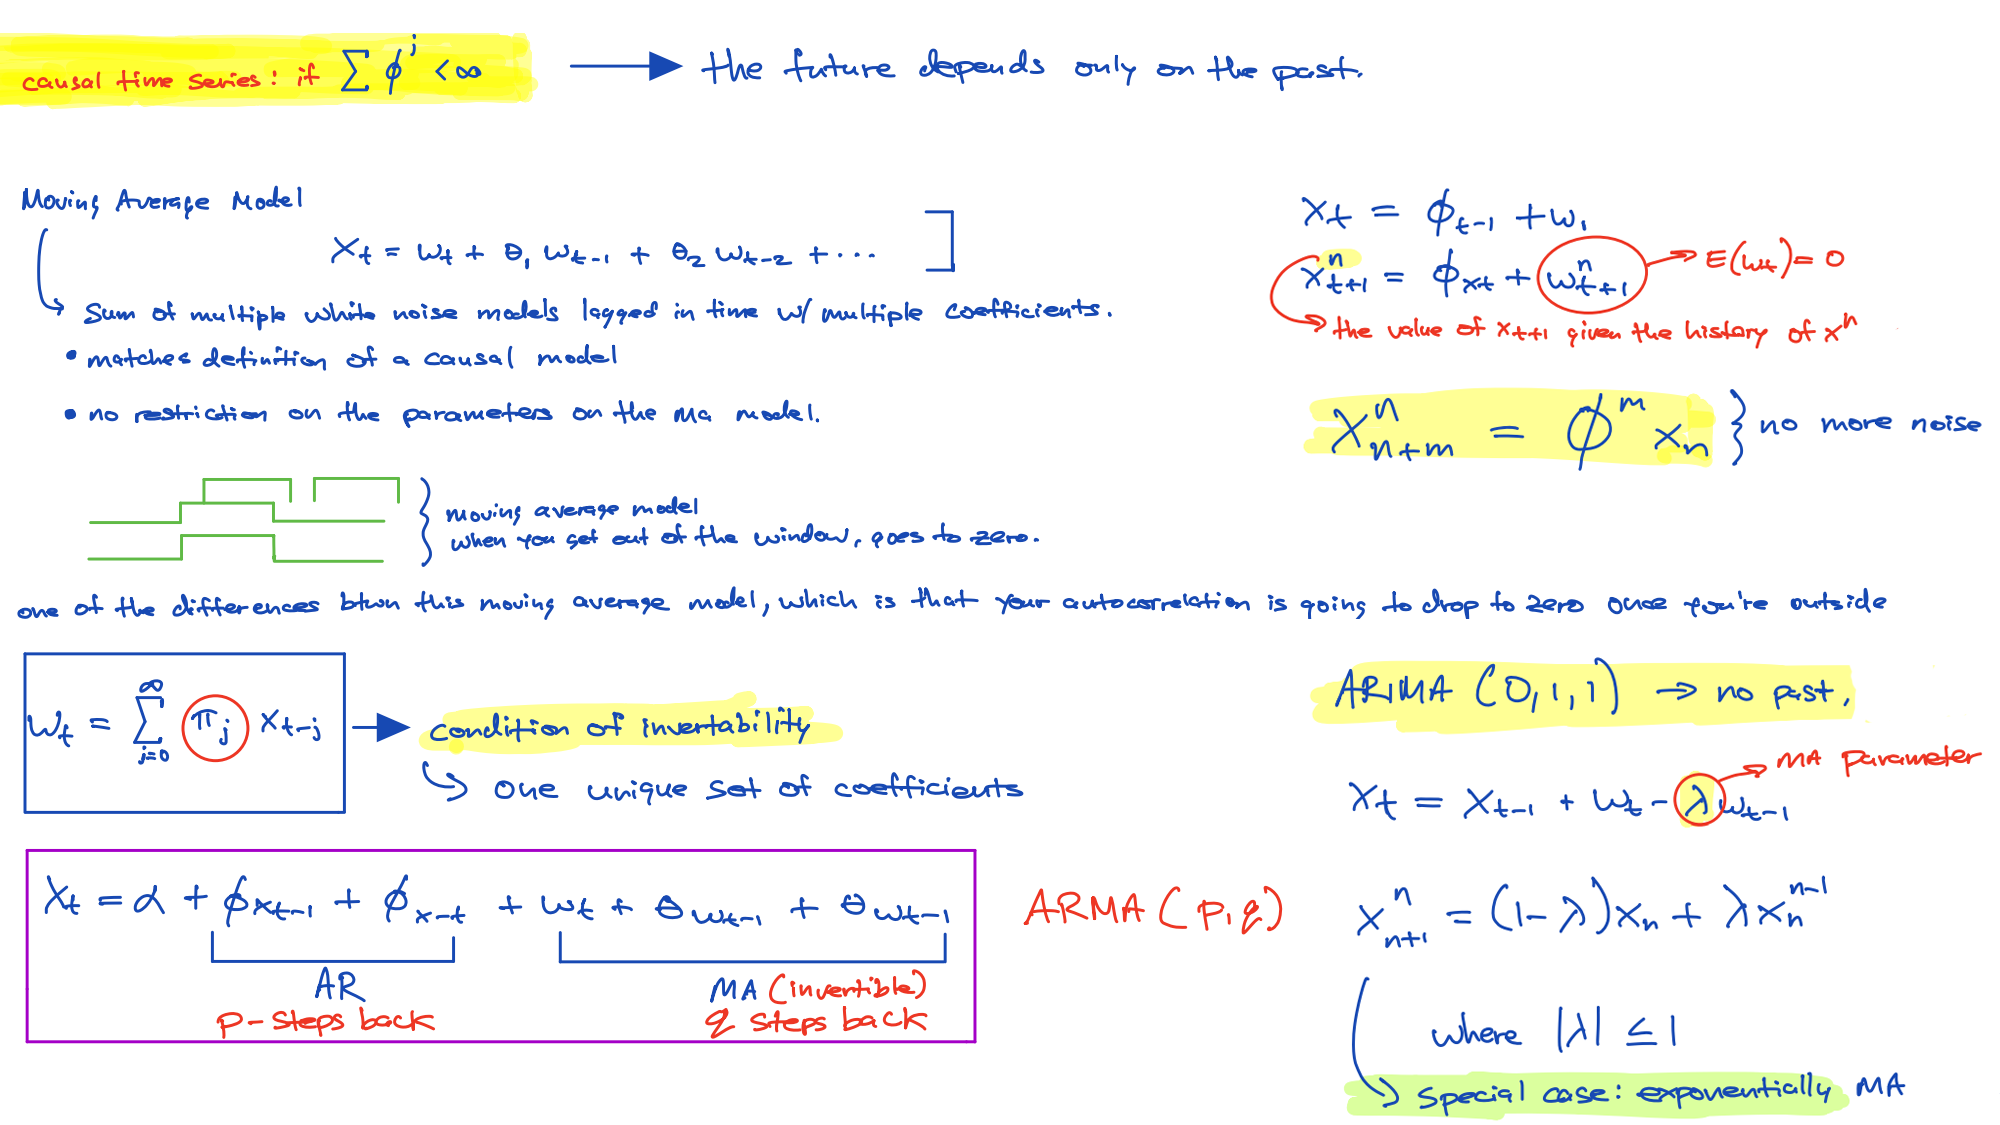 causal time series: if ∑ ϕ^j < ∞ → the future depends only on the past.
Moving Average Model
X_t = w_t + θ_1 w_{t-1} + θ_2 w_{t-2} + ...
Sum of multiple white noise models lagged in time w/ multiple coefficients.
• matches definition of a causal model
• no restriction on the parameters on the MA model.
moving average model
when you get out of the window, goes to zero.
x_t = ϕ_{t-1} + w_1
x^n_{t+1} = ϕ_{xt} + w^n_{t+1} → E(w_t) = 0
→ the value of x_{t+1} given the history of x^n
X^n_{n+m} = ϕ^m x_n } no more noise
one of the differences btwn this moving average model, which is that your autocorrelation is going to drop to zero once you're outside
w_t = ∑_{j=0}^∞ π_j x_{t-j} → condition of invertability
↳ one unique set of coefficients
X_t = α + ϕ_{xt-1} + ϕ_{x-t} + w_t + θ_{wt-1} + θ_{wt-1}
AR
p-steps back
MA (invertible)
q steps back
ARMA (p,q)
ARIMA (0,1,1) → no past.
→ MA parameter
x_t = x_{t-1} + w_t - λw_{t-1}
x^n_{n+1} = (1-λ)x_n + λx^{n-1}_n
where |λ| ≤ 1
→ special case: exponentially MA